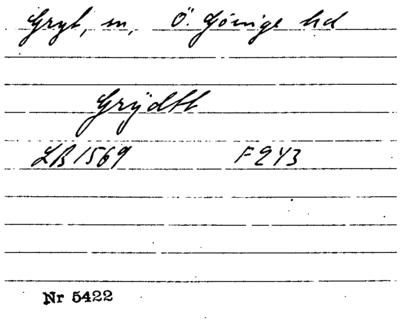 Gryt, m, Ö. Göinge hd
Grÿdtt
LB 1569 F 243
Nr 5422